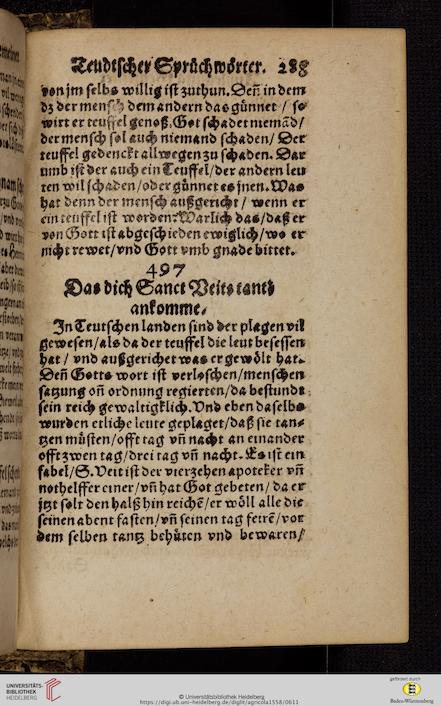 Teudtscher Sprüchwörter. 288
von jm selbs willig ist zuthun. Deñ in dem
dz der mensch dem andern das günnet / so
wirt er teuffel genoß. Got schadet niemãd /
der mensch sol auch niemand schaden / Der
teuffel gedenckt allwegen zu schaden. Dar
umb ist der auch ein Teuffel / der andern leu
ten wil schaden / oder günnet es jnen. Was
hat denn der mensch außgericht / wenn er
ein teuffel ist worden? Warlich das / daß er
von Gott ist abgeschieden ewiglich / wo er
nicht rewet / vnd Gott vmb gnade bittet.
497
Das dich Sanct Veits tantz
ankomme.
In Teutschen landen sind der plagen vil
gewesen / als da der teuffel die leut besessen
hat / vnd außgerichet was er gewölt hat.
Deñ Gotts wort ist verloschen / menschen
satzung oñ ordnung regierten / da bestunde
sein reich gewaltigklich. Vnd eben daselbs
wurden etliche leute geplaget / daß sie tan-
tzen müsten / offt tag vñ nacht an einander
offt zwen tag / drei tag vñ nacht. Es ist ein
fabel / S. Veit ist der vierzehen apoteker vñ
nothelffer einer / vñ hat Got gebeten / da er
jtzt solt den halß hin reichẽ / er wöll alle die
seinen abent fasten / vñ seinen tag feirẽ / vor
dem selben tantz behüten vnd bewaren /
UNIVERSITÄTS-
BIBLIOTHEK
HEIDELBERG
© Universitätsbibliothek Heidelberg
https://digi.ub.uni-heidelberg.de/diglit/agricola1558/0611
gefördert durch
Baden-Württemberg